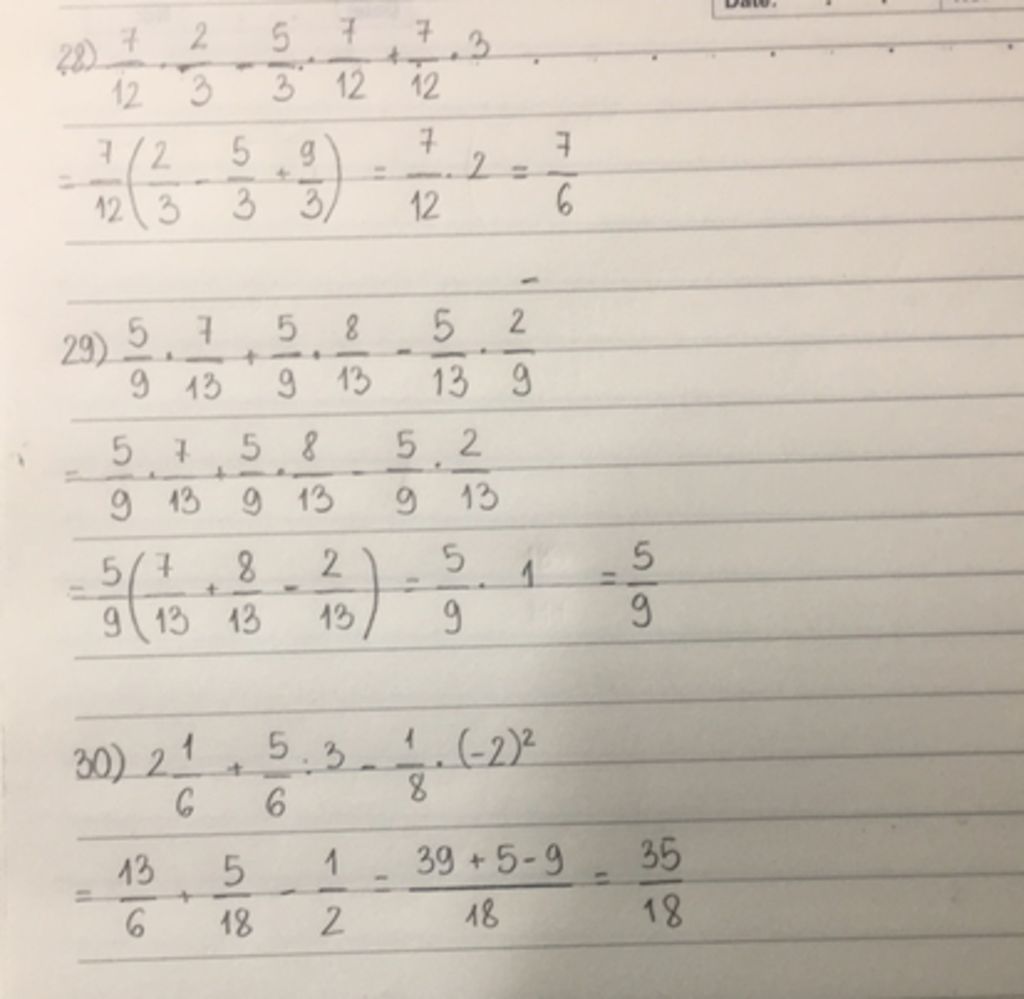 Date:
28) 7/12 · 2/3 - 5/3 · 7/12 + 7/12 · 3
= 7/12 (2/3 - 5/3 + 9/3) = 7/12 · 2 = 7/6
29) 5/9 · 7/13 + 5/9 · 8/13 - 5/13 · 2/9
= 5/9 · 7/13 + 5/9 · 8/13 - 5/9 · 2/13
= 5/9 (7/13 + 8/13 - 2/13) = 5/9 · 1 = 5/9
30) 2 1/6 + 5/6 : 3 - 1/8 · (-2)²
= 13/6 + 5/18 - 1/2 = 39 + 5 - 9/18 = 35/18